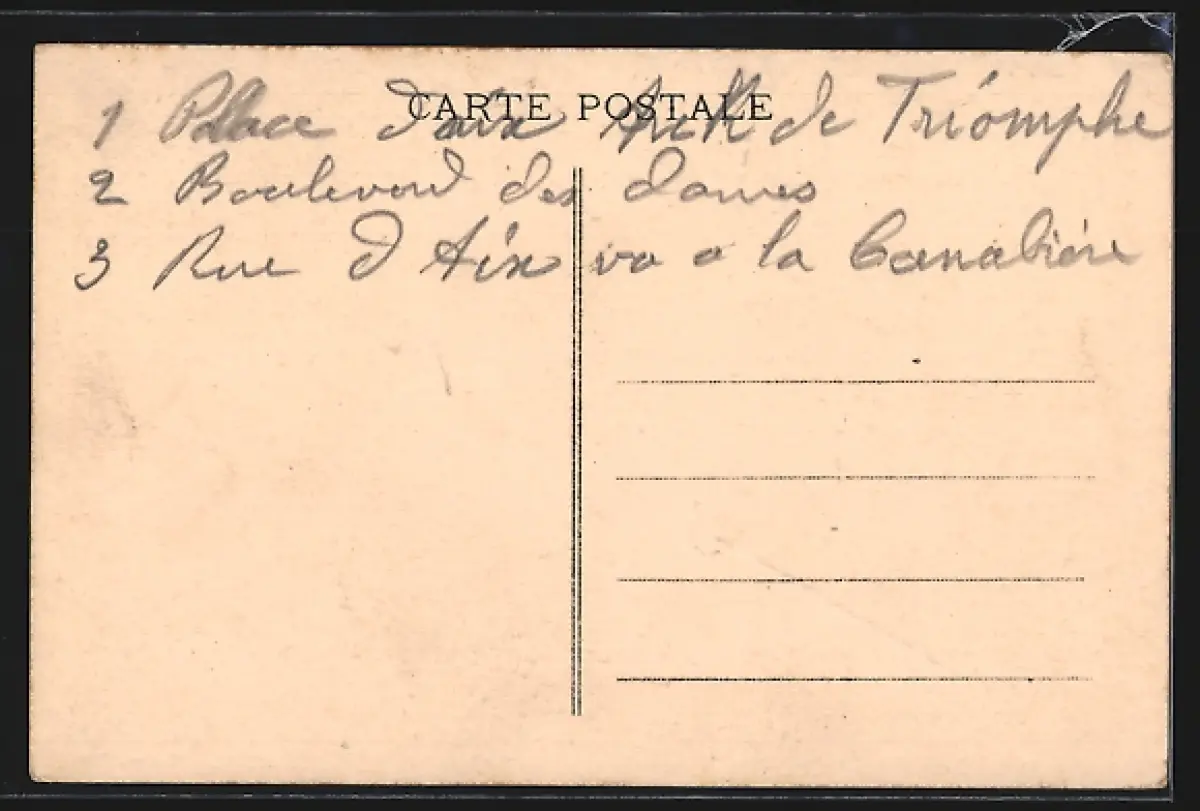 CARTE POSTALE
1 Place daix de Triomphe
2 Boulevard des dames
3 Rue d Aix va a la Canabière